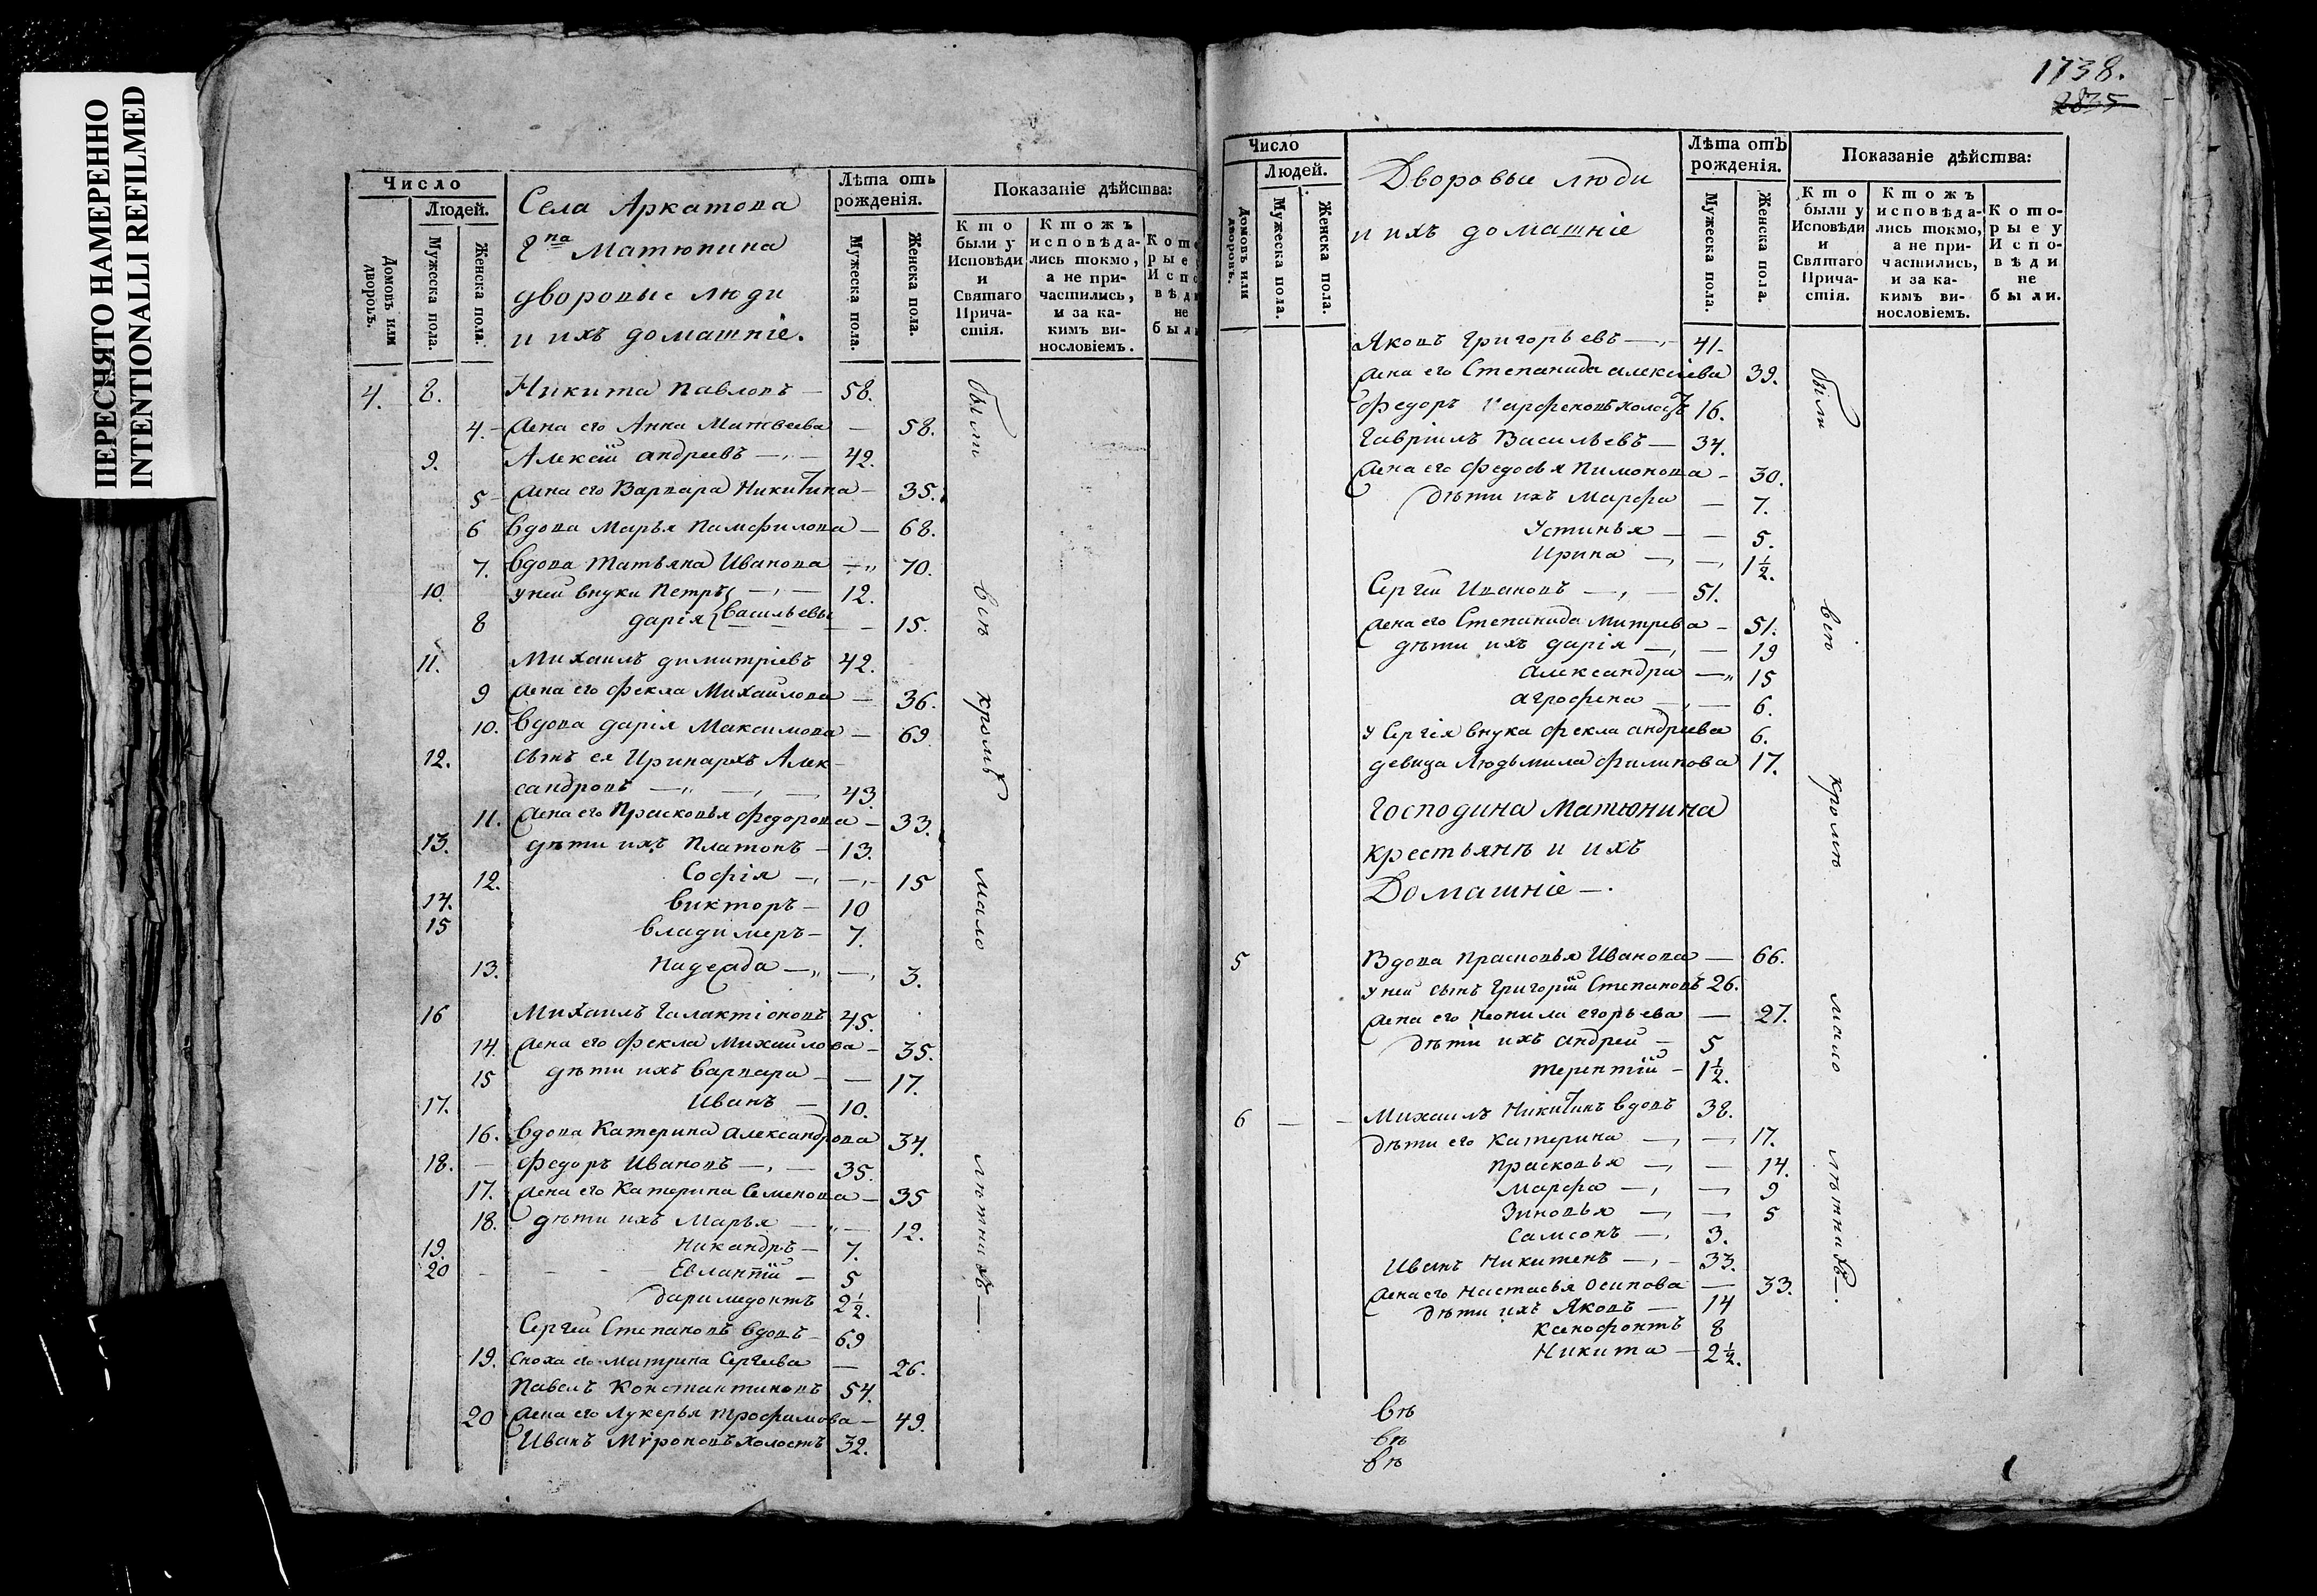 ПЕРЕСНЯТО НАМЕРЕННО
INTENTIONALLI REFILMED
Число
Людей.
Домовъ или дворовъ.
Мужеска пола.
Женска пола.
Села Аркатова
Гна Матюнина
дворовые люди
и ихъ домашніе.
Лѣта отъ рожденія.
Мужеска пола.
Женска пола.
Показаніе дѣйства:
Кто были у Исповѣди и Святаго Прича-стія.
Ктожъ исповѣда-лись токмо, а не при-частились, и за ка-кимъ ви-нословіемъ.
4. 8. Никита Павловъ — 58.
4. — жена его Анна Матвеева — 58.
9. Алексій андреевъ — 42.
5 — жена его Варвара Никитина — 35.
6 вдова Марья Памфилова — 68.
7. вдова Татьяна Иванова — 70.
10. у ней внуки Петръ — 12.
8 дарія Васильевы — 15.
11. Михаилъ димитріевъ 42.
9 жена его фекла Михаилова — 36.
10. вдова дарія Максимова — 69
12. сынъ ея Иринархъ Алек-
сандровъ — 43.
11. жена его Прасковья федорова — 33.
13. дѣти ихъ Платонъ — 13.
12. Софія — 15
14. викторъ — 10
15 владимеръ — 7.
13. надежда — 3.
16 Михаилъ Галактіоновъ 45.
14. жена его фекла Михаилова — 35.
15 дѣти ихъ варвара — 17.
17. Иванъ — 10.
16. вдова Катерина александрова 34.
18. — федоръ Ивановъ — 35.
17. жена его Катерина Семенова — 35
18. дѣти ихъ Марья — 12.
19. Никандръ — 7.
20 Евлантій — 5
даримедонтъ 2½.
Сергей Степановъ вдовъ — 69
19. сноха его матрина Сергеева — 26.
Павелъ Константиновъ 54.
20 жена его Лукерья трофимова — 49.
Иванъ Мѵроновъ холостъ 32.
были всѣ кромѣ мало лѣтнихъ —.
1738.
2835
Число
Людей.
Домовъ или дворовъ.
Мужеска пола.
Женска пола.
Дворовые люди
и ихъ домашніе
Лѣта отъ рожденія.
Мужеска пола.
Женска пола.
Показаніе дѣйства:
Кто были у Исповѣди и Святаго Прича-стія.
Ктожъ исповѣда-лись токмо, а не при-частились, и за ка-кимъ ви-нословіемъ.
Кото-рые у Испо-вѣди не были.
Яковъ Григорьевъ — 41.
жена его Степанида алексіева 39.
федоръ холостъ 16.
Гавріилъ Васильевъ — 34.
жена его федосья Пимонова — 30.
дѣти ихъ Марфа — 7.
Устинья — 5.
Ирина — 1½.
Сергей Ивановъ — 51.
жена его Степанида Митрева — 51.
дѣти ихъ дарія — 19
александра — 15
агрофена — 6.
у Сергія внука фекла андреева 6.
девица Людьмила филипова 17.
Господина Матюнина
крестьянѣ и ихъ
Домашніе —.
5 Вдова Прасковья Иванова — 66.
у ней сынъ григорій Степановъ 26.
жена его неонила егорьева — 27.
дѣти ихъ андрей — 5
терентій — 1½.
6 — — Михаилъ Никитинъ вдовъ 38.
дѣти его катерина — 17.
прасковья — 14.
Марфа — 9
Зиновья — 5
Самсонъ — 3.
Иванъ Никитенъ — 33.
жена его Настасья Осипова — 33.
дѣти ихъ Яковъ — 14
ксенофонтъ 8
Никита — 2½.
были всѣ кромѣ мало лѣтнихъ —.
вѣ
вѣ
вѣ